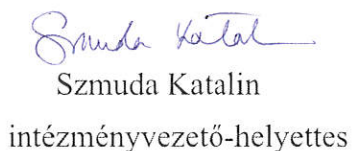 Szmuda Katalin
Szmuda Katalin
intézményvezető-helyettes